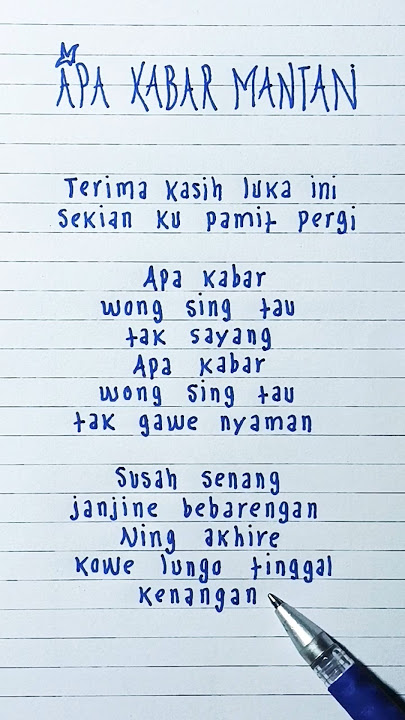 APA KABAR MANTAN
Terima kasih luka ini
Sekian ku pamit pergi
Apa kabar
wong sing tau
tak sayang
Apa kabar
wong sing tau
tak gawe nyaman
Susah senang
janjine bebarengan
Ning akhire
kowe lungo tinggal
kenangan